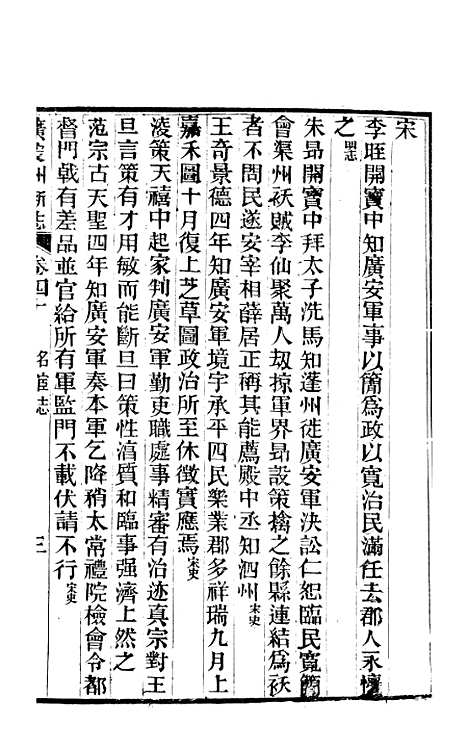 宋
李昈開寶中知廣安軍事以簡爲政以寬治民滿任去郡人永懷
之舊志
朱昂開寶中拜太子洗馬知蓬州徙廣安軍決訟仁恕臨民寬簡
會渠州祅賊李仙聚萬人刼掠軍界昂設策擒之餘縣連結爲祅
者不問民遂安宰相薛居正稱其能薦殿中丞知泗州宋史
王奇景德四年知廣安軍境宇承平四民樂業郡多祥瑞九月上
嘉禾圖十月復上芝草圖政治所至休徵實應焉宋史
淩策天禧中起家判廣安軍勤吏職處事精審有治迹真宗對王
旦言策有才用敏而能斷旦曰策性淳質和臨事强濟上然之
范宗古天聖四年知廣安軍奏本軍乞降稍太常禮院檢會令都
督門戟有差品並官給所有軍監門不載伏請不行宋史
廣安州新志 卷四十 名宦志 三